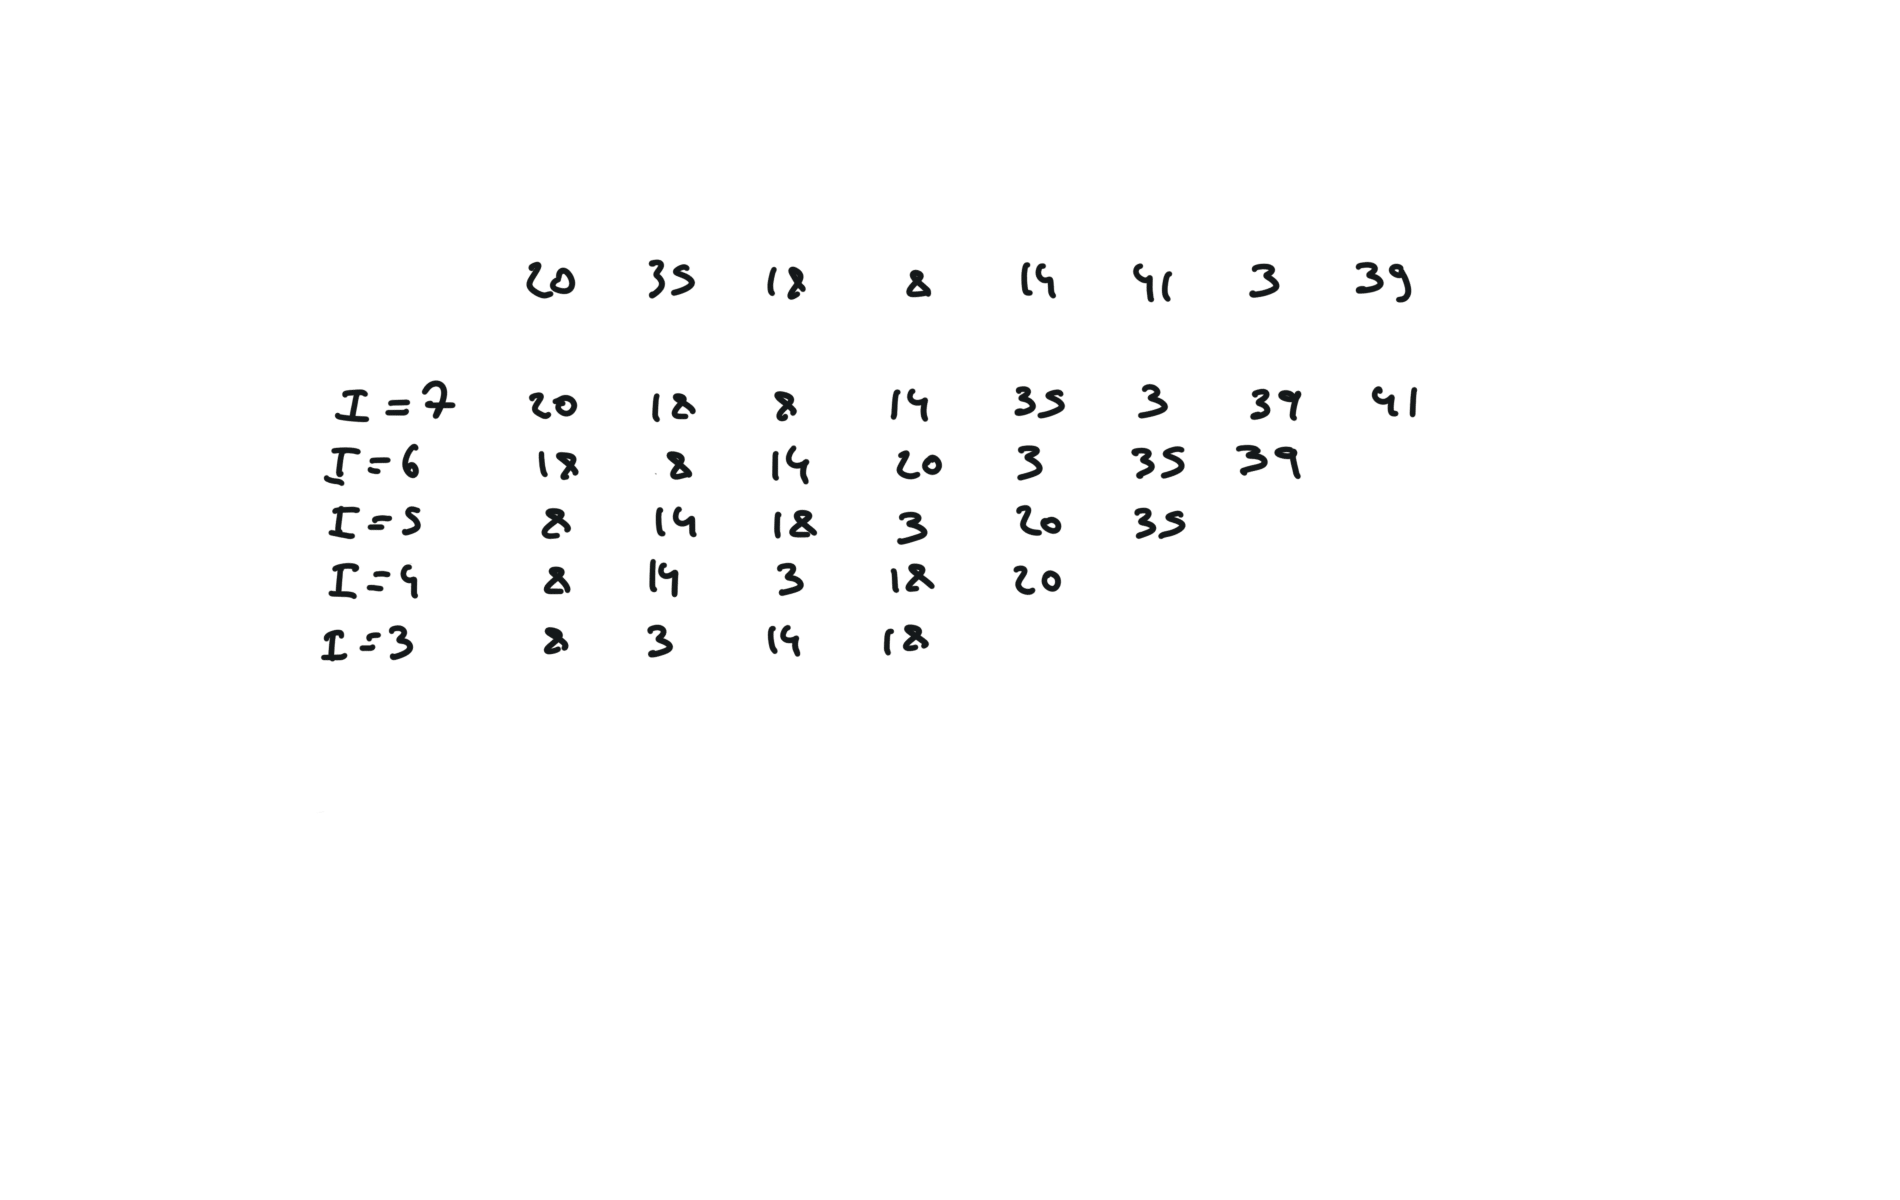 20 35 18 8 14 41 3 39
I=7 20 18 8 14 35 3 39 41
I=6 18 8 14 20 3 35 39
I=5 8 14 18 3 20 35
I=4 8 14 3 18 20
I=3 8 3 14 18